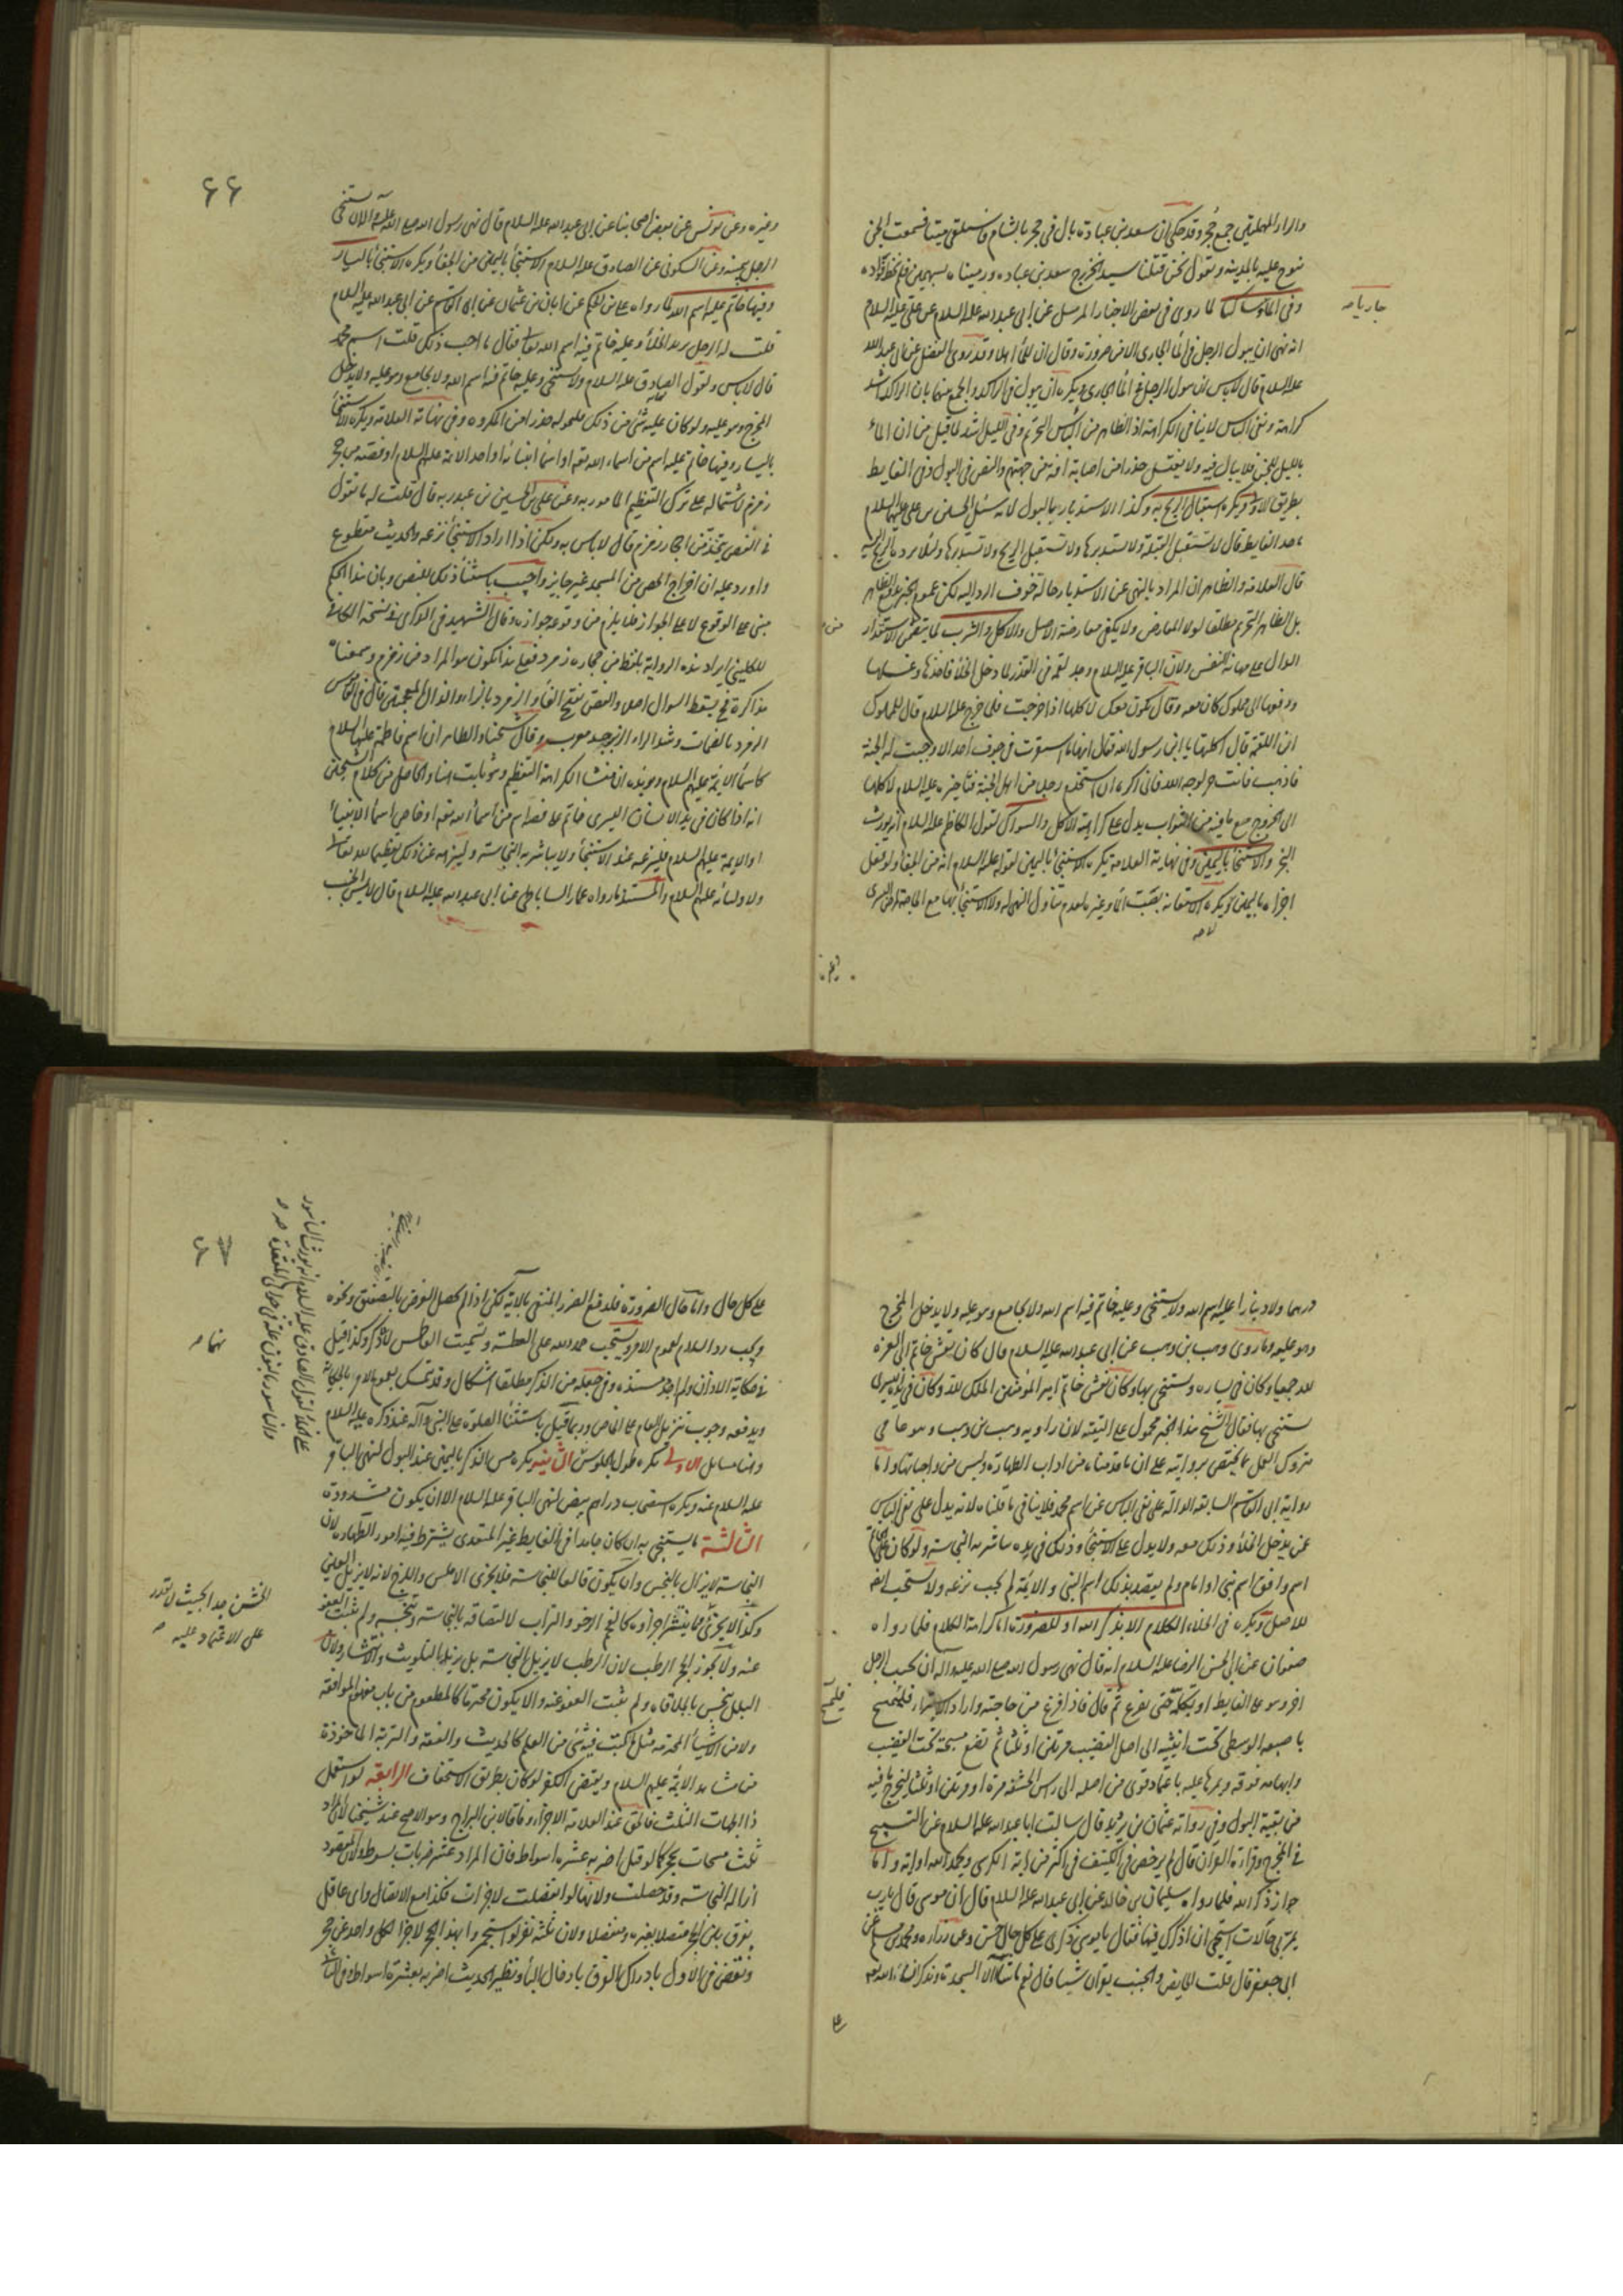 والراء المهملتين جمع حجر وقد حكي ان سعد بن عبادة بال في حجر بالشام فاستلقى ميتا فسمعت الجن
تنوح عليه بالمدينة وتقول نحن قتلنا سيد الخزرج سعد بن عباده ورميناه بسهمين فلم نخط فؤاده
وفي الماء لما روي في بعض الاخبار المرسل عن ابي عبد الله عليه السلام عن علي عليه السلام
جاريا صه
انه نهى ان يبول الرجل في الماء الجاري الا من ضرورة وقال ان للماء اهلا وقد روى الفضيل عن ابي عبد الله
عليه السلام قال لا باس ان يبول الرجل في الماء الجاري ويكره ان يبول في الراكد والجمع بينهما بان الراكد اشد
كراهة ونفي الباس لا ينافي الكراهة اذ الظاهر من الباس التحريم وفي الليل اشد لما قيل من ان الماء
بالليل للجن فلا يبال فيه ولا يغتسل حذرا من اصابة افة من جهتهم والنص في البول وفي الغايط
بطريق الاولى ويكره استقبال الريح به وكذا الاستدبار بالبول لانه سئل الحسن بن علي عليهما السلام
ما حد الغايط قال لا تستقبل القبلة ولا تستدبرها ولا تستقبل الريح ولا تستدبرها ولئلا يرد بالريح اليه
قال العلامة والظاهر ان المراد بالنهي عن الاستدبار حالة خوف الرد اليه لكن عموم الخبر
بل الظاهر التحريم مطلقا لولا المعارض ولا يكفي معارضة الاصل والاكل والشرب لما يتضمن الاستقذار
الدال على مهانة النفس ولان الباقر عليه السلام وجد لقمة في القذر لما دخل الخلاء فاخذها وغسلها
ودفعها الى مملوك كان معه وقال تكون معك لاكلها اذا خرجت فلما خرج عليه السلام قال للمملوك
اين اللقمة قال اكلتها يا ابن رسول الله فقال انها ما استقرت في جوف احد الا وجبت له الجنة
فاذهب فانت حر لوجه الله فاني اكره ان استخدم رجلا من اهل الجنة فتاخيره عليه السلام لاكلها
الى الخروج مع ما فيه من الثواب يدل على كراهة الاكل والسواك لقول الكاظم عليه السلام انه يورث
البخر والاستنجاء باليمين وفي نهاية العلامة يكره الاستنجاء باليمين لقوله عليه السلام انه من الجفاء ولو فعل
اجزاه باليمين ويكره الاستعانة بصب الماء وغيره لعدم تناول النهي له ولا الاستنجاء بها مع الحاجة لمرض اليسرى
لا صه
وغيره وعن يونس عن بعض اصحابنا عن ابي عبد الله عليه السلام قال نهى رسول الله صلى الله عليه وآله ان يستنجي
الرجل بيمينه وعن السكوني عن الصادق عليه السلام الاستنجاء باليمين من الجفاء ويكره الاستنجاء باليسار
وفيها خاتم عليه اسم الله لما رواه علي بن الحكم عن ابان بن عثمان عن ابي القاسم عن ابي عبد الله عليه السلام
قلت له الرجل يريد الخلاء وعليه خاتم فيه اسم الله تعالى فقال ما احب ذلك قلت اسم محمد
قال لا باس ولقول الصادق عليه السلام ولا يستنجي وعليه خاتم فيه اسم الله ولا يجامع وهو عليه ولا يدخل
المخرج وهو عليه ولو كان عليه شئ من ذلك حوله حذرا من المكروه وفي نهاية العلامة ويكره الاستنجاء
باليسار وفيها خاتم عليه اسم من اسماء الله تعه او اسماء انبيائه او احد الائمة عليهم السلام او فصه من حجر
زمزم لاشتماله على ترك التعظيم المامور به وعن علي بن الحسين بن عبد ربه قال قلت له ما تقول
في الفص يتخذ من احجار زمزم قال لا باس به ولكن اذا اراد الاستنجاء نزعه والحديث مقطوع
واورد عليه ان اخراج الحصى من المسجد غير جايز واجيب باستثناء ذلك للنص وبان هذا الحكم
مبني على الوقوع لا على الجواز فلا يلزم من وقوعه جوازه وقال الشهيد في الذكرى في نسخة الكافي
للكليني ايراد هذه الرواية بلفظ من حجارة زمرد فعلى هذا تكون هو المراد من زمزم وسمعناه
مذاكرة فح يسقط السوال اصلا والفص بفتح الفاء والزمرد بالزاء والذال المعجمتين قال في القاموس
الزمرد بالضمات وشد الراء الزبرجد معرب وقال شيخنا والظاهر ان اسم فاطمة عليها السلام
كاسماء الائمة عليهم السلام ويؤيده ان منشا الكراهة التعظيم وهو ثابت هنا والحاصل من كلام الشيخين
انه اذا كان في يد الانسان اليسرى خاتم على فصه اسم من اسماء الله تعه او خاص اسماء الانبياء
او الائمة عليهم السلام فلينزعه عند الاستنجاء ولا يباشر به النجاسة ولينزهه عن ذلك تعظيما لله تعالى
ولاوليائه عليهم السلام والمستند ما رواه عمار الساباطي عن ابي عبد الله عليه السلام قال لا يمس الجنب
٦٦
درهما ولا دينارا عليه اسم الله ولا يستنجي وعليه خاتم فيه اسم الله ولا يجامع وهو عليه ولا يدخل المخرج
وهو عليه وما روى وهب بن وهب عن ابي عبد الله عليه السلام قال كان نقش خاتم ابي العزة
لله جميعا وكان في يساره يستنجي بها وكان نقش خاتم امير المؤمنين الملك لله وكان في يده اليسرى
يستنجي بها فقال الشيخ هذا الخبر محمول على التقية لان راويه وهب بن وهب وهو عامي
متروك العمل بما يختص بروايته على ان ما قدمناه من اداب الطهارة وليس من واجباتها واما
رواية ابي القاسم السابقة الدالة على نفي الباس عن اسم محمد فلا ينافي ما قلناه لانه يدل على نفي الباس
عن يدخل الخلاء وذلك معه ولا يدل على الاستنجاء وذلك في يده مباشر به النجاسة ولو كان على الخاتم
اسم وافق اسم نبي او امام ولم يقصد بذلك اسم النبي والائمة لم يجب نزعه ولا يستحب ايضا
للاصل ويكره في الخلاء الكلام الا بذكر الله او للضرورة اما كراهة الكلام فلما رواه
صفوان عن ابي الحسن الرضا عليه السلام انه قال نهى رسول الله صلى الله عليه واله ان يجيب الرجل
اخر وهو على الغايط او يكلمه حتى يفرغ ثم قال فاذا فرغ من حاجته واراد الاستبراء فليمسح
باصبعه الوسطى تحت انثييه الى اصل القضيب مرتين او ثلثا ثم تضع مسبحته تحت القضيب
وابهامه فوقه ويمرها عليه باعتماد قوي من اصله الى راس الحشفة مرة او مرتين او ثلثا ليخرج ما فيه
من بقية البول وفي رواية عثمان بن يزيد قال سالت ابا عبد الله عليه السلام عن التسبيح
في المخرج وقراءة القران قال لم يرخص في الكنيف في اكثر من اية الكرسي ويحمد الله او اية واما
جواز ذكر الله فلما رواه سليمان بن خالد عن ابي عبد الله عليه السلام قال ان موسى قال يا رب
يمر بي حالات استحي ان اذكرك فيها فقال يا موسى ذكري على كل حال حسن وعن زراره ومحمد بن مسلم عن
ابي جعفر قال قلت الحايض والجنب يقران شيئا قال نعم ما شاءا الا السجدة ويذكران الله تعه
على كل حال واما حال الضرورة فلدفع الضرر المنفي بالاية لكن اذا لم يحصل الغرض بالتصفيق ونحوه
ويجب رد السلام لعموم الامر ويستحب حمد الله على العطسة وتسميت العاطس لانه ذكر وكذا قيل
في حكاية الاذان ولم اجد مستنده وفي جعله من الذكر مطلقا اشكال وقد تمسك بعموم الامر بالحكاية
ويدفعه وجوب تنزيل العام على الخاص وربما قيل باستثناء الصلوة على النبي وآله عند ذكره عليه السلام
وهنا مسايل الاولى يكره طول الجلوس الثانية يكره مس الذكر باليمين عند البول لنهي الباقر
عليه السلام عنه ويكره استصحاب دراهم بيض لنهي الباقر عليه السلام الا ان يكون مشدودة
الثالثة ما يستنجي به ان كان جامدا في الغايط غير المتعدي يشترط فيه امور الطهارة لان
النجاسة لا يزال بالنجس وان يكون قالعا للنجاسة فلا يجزي الاملس واللزج لانه لا يزيل العين
وكذا لا يجزي ما ينتشر اجزاؤه كالفحم الرخو والتراب لالتصاقه بالنجاسة وتنجسه ولم يثبت العفو
عنه ولا يجوز الحجر الرطب لان الرطب لا يزيل النجاسة بل يزيدها بالتلويث والانتشار ولان
البلل ينجس بالملاقاة ولم يثبت العفو عنه وان لا يكون محترما كالمطعوم من باب مفهوم الموافقة
ولا من الاشياء المحترمه مثل ما كتبت فيه شئ من العلم كالحديث والفقه والتربة الماخوذة
من مشاهد الائمة عليهم السلام ويقتضي الكفر لو كان بطريق الاستخفاف الرابعة لو استعمل
ذا الجهات الثلث فالحق عند العلامة الاجزاء وفاقا لابن البراج وهو الاصح عند شيخنا لان المراد
ثلث مسحات بحجر كما لو قيل اضربه عشرة اسواط فان المراد عشر ضربات بسوط ولان المقصود
ازالة النجاسة وقد حصلت ولانها لو انفصلت لاجزات فكذا مع الاتصال واي عاقل
يفرق بين الحجر متصلا بغيره ومنفصلا ولان ثلثة نفر لو استجمروا بهذا الحجر لاجزا لكل واحد عن حجر
ونقض في الاول بادراك الفرق بادخال الباء ونظير الحديث اضربه بعشرة اسواط وفي الثاني
٦٧
الخشن ضد
على الاعتماد عليه صه